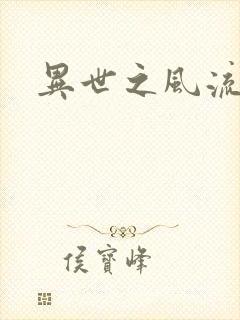 異世之風流
侯寶峰